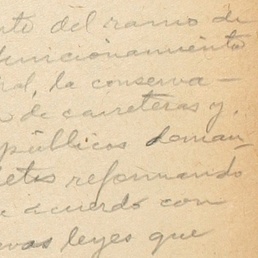 nte del ramo de
funcionamiento
ral, la conserva-
n de carreteras y
públicos deman
etes reformando
e acuerdo con
evas leyes que